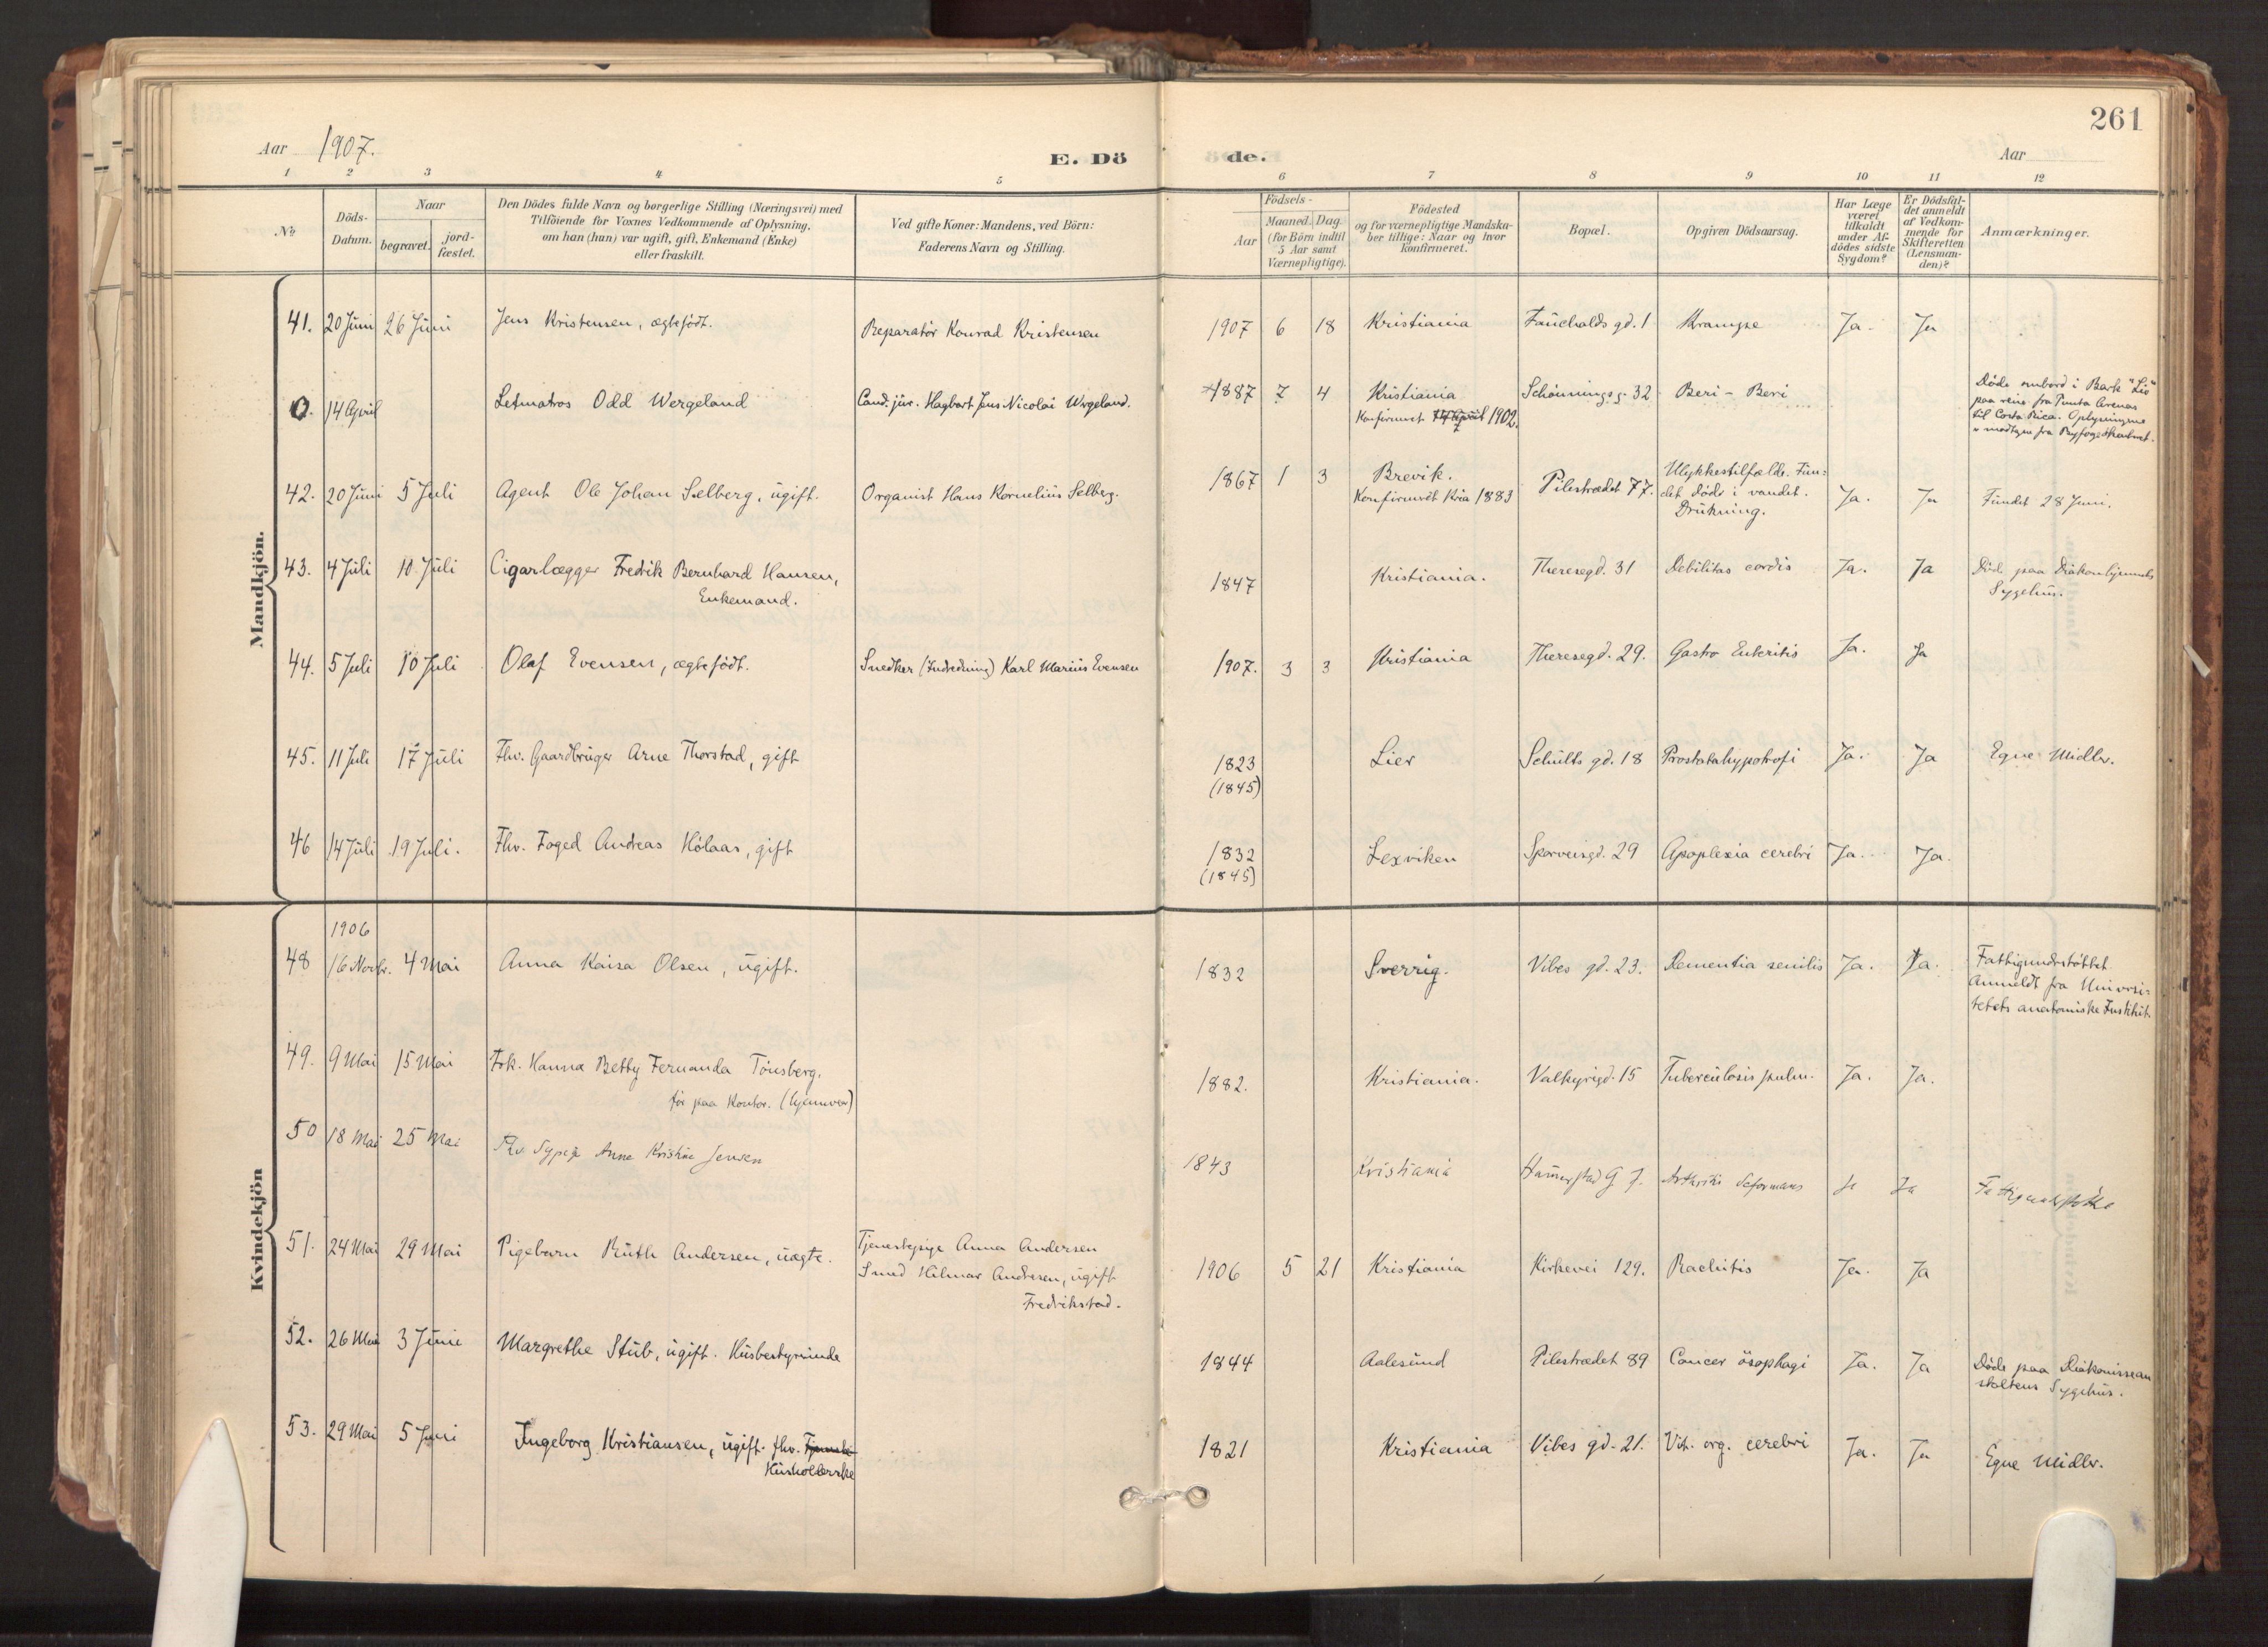 261
Aar 1907.
E. Dö
de.
Aar
1 2 3 4 5 6 7 8 9 10 11 12
No
Döds-
Datum.
Naar
begravet.
jord-
fæstet.
Den Dödes fulde Navn og borgerlige Stilling (Næringsvei) med
Tilföiende for Voxnes Vedkommende af Oplysning,
om han (hun) var ugift, gift, Enkemand (Enke)
eller fraskilt.
Ved gifte Koner: Mandens, ved Börn:
Faderens Navn og Stilling.
Födsels-
Aar
Maaned. Dag.
(for Börn indtil
5 Aar samt
Værnepligtige).
Födested
og for værnepligtige Mandska-
ber tillige: Naar og hvor
konfirmeret.
Bopæl.
Opgiven Dödsaarsag.
Har Læge
været
tilkaldt
under Af-
dödes sidste
Sygdom?
Er Dödsfal-
det anmeldt
af Vedkom-
mende for
Skifteretten
(Lensman-
den)?
Anmærkninger.
Mandkjön.
41. 20 Juni 26 Juni Jens Kristensen, ægtefödt. Reparatör Konrad Kristensen 1907 6 18 Kristiania Faucholds gd. 1 Krampe Ja. Ja
0. 14 April Letmatros Odd Wergeland Cand. jur. Hagbart Jens Nicolai Wergeland. 1887 7 4 Kristiania Schönningsg. 32 Beri-Beri
Konfirmert 14 April 1902.
Döde ombord i Bark "Liv"
paa reise fra Punta Arenas
til Costa Rica. Oplysningerne
er modtagne fra Byfogedkontoret.
42. 20 Juni 5 Juli Agent Ole Johan Selberg, ugift. Organist Hans Kornelius Selberg. 1867 1 3 Brevik.
Konfirmert Kria 1883
Pilestrædet 77.
Ulykkestilfælde. Fun-
det död i vandet.
Drukning.
Ja. Ja Fundet 28 Juni.
43. 4 Juli 10 Juli Cigarlægger Fredrik Bernhard Hansen,
Enkemand.
1847 Kristiania. Theresegd. 31 Debilitas cordis Ja. Ja Död paa Diakonhjemmets
Sygehus.
44. 5 Juli 10 Juli Olaf Evensen, ægtefödt. Snedker (Indredning) Karl Marius Evensen 1907. 3 3 Kristiania Theresegd. 29. Gastro Enteritis Ja. Ja
45. 11 Juli 17 Juli Fhv. Gaardbruger Arne Thorstad, gift 1823
(1845)
Lier Schults gd. 18 Prostatahypotrofi Ja. Ja Egne Midler.
46 14 Juli 19 Juli. Fhv. Foged Andreas Hölaas, gift 1832
(1845)
Lexviken Sporveisgd. 29 Apoplexia cerebri Ja. Ja.
Kvindekjön
1906
48 16 Novbr. 4 Mai Anna Kaisa Olsen, ugift. 1832 Sverrig. Vibes gd. 23. Dementia senilis Ja. Ja. Fattigunderstöttet
Anmeldt fra Universi-
tetets anatomiske Institut
49. 9 Mai 15 Mai Frk. Hanna Betty Fernanda Tönsberg.
för paa Kontor. (hjemmev)
1882. Kristiania. Valkyrigd. 15 Tuberculosis pulm. Ja. Ja.
50 18 Mai 25 Mai Fhv Sypige Anne Kristine Jensen 1843 Kristiania Hammerstad G 7. Arthritis deformans Ja Ja Fattigunderstöttet
51. 24 Mai 29 Mai Pigebarn Ruth Andersen, uægte. Tjenestepige Anna Andersen
Smed Hilmar Andresen, ugift
Fredrikstad.
1906 5 21 Kristiania Kirkevei 129. Rachitis Ja. Ja
52. 26 Mai 3 Juni Margrethe Stub, ugift. Husbestyrerinde 1844 Aalesund Pilestrædet 89 Cancer ösophagi Ja. Ja Döde paa Diakonissean-
staltens Sygehus.
53. 29 Mai 5 Juni Ingeborg Kristiansen, ugift. fhv. Tjeneste
Husholderske
1821 Kristiania Vibes gd. 21. Vit. org. cerebri Ja. Ja Egne Midler.